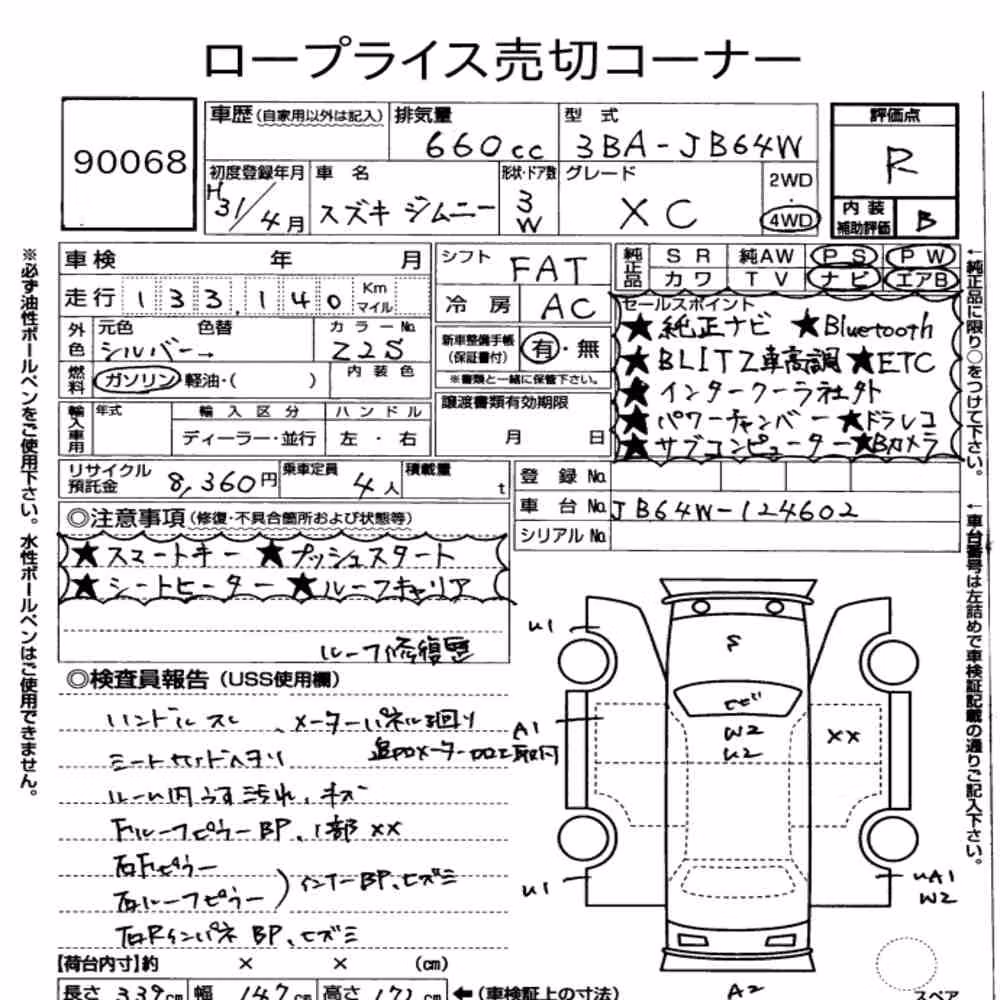 ロープライス売切コーナー
90068
車歴 (自家用以外は記入) 排気量 660cc 型式 3BA-JB64W
評価点 R
初度登録年月 H31/4月 車名 スズキ ジムニー 形状・ドア数 3W グレード XC 2WD・4WD
内装補助評価 B
車検 年 月
シフト FAT
純正品 SR 純AW PS PW
カワ TV ナビ エアB
走行 133,140 Km マイル
冷房 AC
セールスポイント
★純正ナビ ★Bluetooth
★BLITZ車高調 ★ETC
★インタークーラー社外
★パワーチャンバー ★ドラレコ
★サブコンピューター ★Bカメラ
外色 元色 シルバー→ 色替 カラーNo. Z2S
新車整備手帳 (保証書付) 有・無
※書類と一緒に保管下さい。
燃料 ガソリン 軽油・( ) 内装色
輸入車用 年式 輸入区分 ハンドル
ディーラー・並行 左・右
譲渡書類有効期限
月 日
リサイクル預託金 8,360円 乗車定員 4人 積載量 t
登録No.
車台No. JB64W-124602
シリアルNo.
◎注意事項 (修復・不具合箇所および状態等)
★スマートキー ★プッシュスタート
★シートヒーター ★ルーフキャリア
ルーフ修復歴
◎検査員報告 (USS使用欄)
ハンドルスレ、メーターパネル回り
追加メーター加工取付
シート
ルーム内うす汚れ、キズ
FルーフピラーBP、1部XX
右Fピラー
右ルーフピラー
インナーBP、ヒズミ
右Rインパネ BP、ヒズミ
U1
S
ヒビ
A1
W2
U2
XX
U1
UA1
W2
A2
スペア
【荷台内寸】約 × × (cm)
長さ 339cm 幅 147cm 高さ 172cm ←(車検証上の寸法)
※必ず油性ボールペンをご使用下さい。水性ボールペンはご使用できません。
←純正品に限り○をつけて下さい。
←車台番号は左詰めで車検証記載の通りご記入下さい。